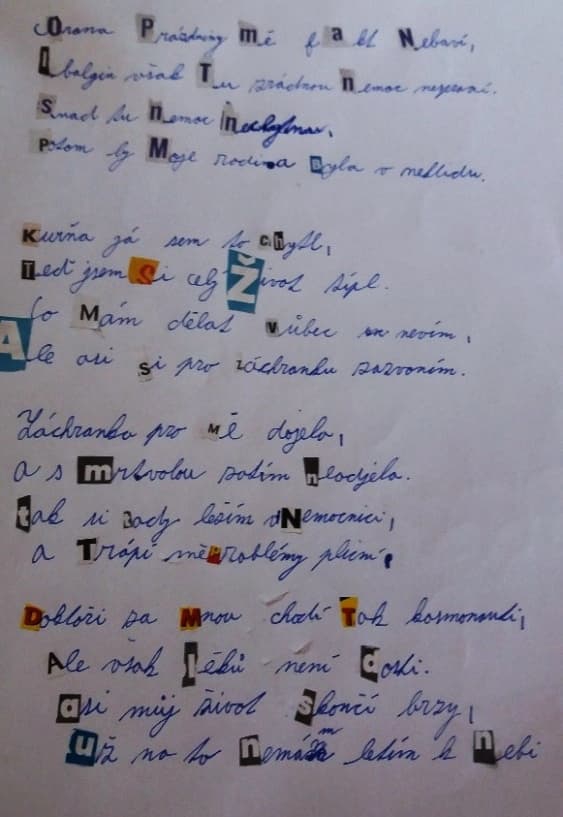 Orona Prázdniny mě fakt Nebaví,
Ibalgin však Tu zrádnou nemoc nespraví.
Snad tu nemoc Nechytnu,
Potom by Moje rodina Byla v neklidu.
Kurňa já sem to chytl,
Teď jsem Si celý Život sípl.
Co Mám dělat vůbec nevím,
Ale asi si pro záchranku zazvoním.
Záchranka pro Mě dojela,
a s mrtvolou zatím neodjela.
tak si tady ležím v Nemocnici,
a Trápí mě Problémy plicní,
Doktoři za Mnou chodí Tak kosmonauti,
Ale však léků není dosti.
asi můj život skončí brzy,
už na to nemám letím k nebi